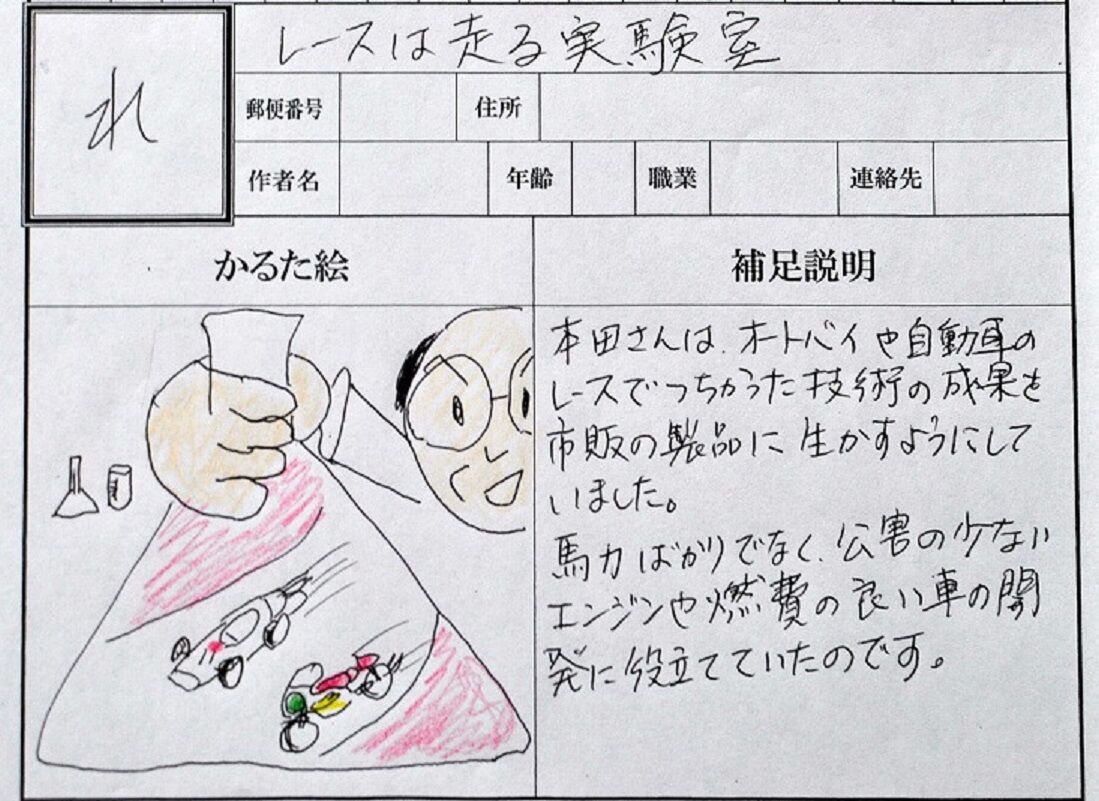 れ
レースは走る実験室
郵便番号
住所
作者名
年齢
職業
連絡先
かるた絵
補足説明
本田さんは、オートバイや自動車の
レースでつちかうた技術の成果を
市販の製品に生かすようにして
いました。
馬力ばかりでなく、公害の少ない
エンジンや燃費の良い車の開
発に役立てていたのです。